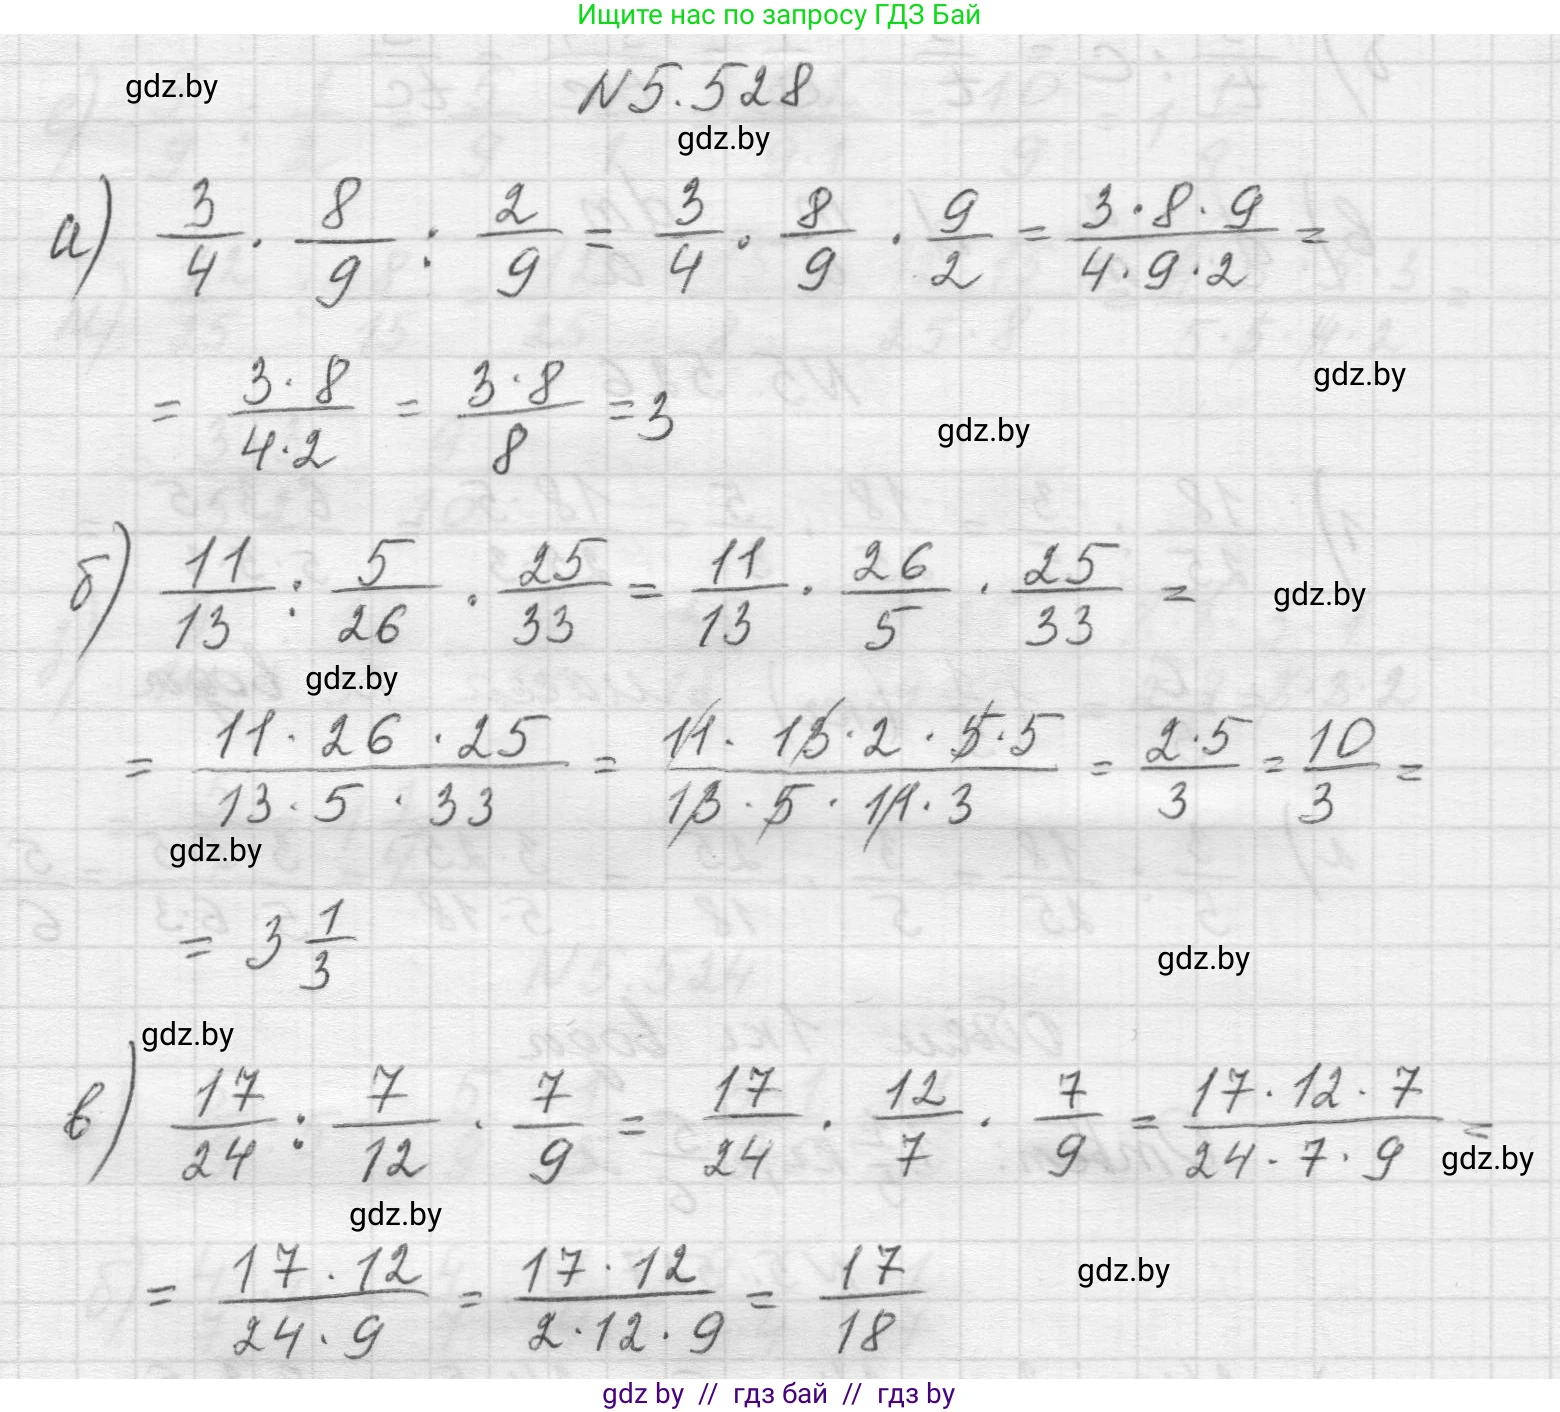 Ищите нас по запросу ГДЗ Бай
gdz.by
N 5.528
gdz.by
а) 3/4 · 8/9 : 2/9 = 3/4 · 8/9 · 9/2 = 3·8·9/4·9·2 =
gdz.by
= 3·8/4·2 = 3·8/8 = 3
gdz.by
б) 11/13 : 5/26 · 25/33 = 11/13 · 26/5 · 25/33 =
gdz.by
gdz.by
= 11·26·25/13·5·33 = 11·13·2·5·5/13·5·11·3 = 2·5/3 = 10/3 =
gdz.by
= 3 1/3
gdz.by
gdz.by
в) 17/24 : 7/12 · 7/9 = 17/24 · 12/7 · 7/9 = 17·12·7/24·7·9 =
gdz.by
gdz.by
= 17·12/24·9 = 17·12/2·12·9 = 17/18
gdz.by
gdz by // гдз бай // гдз by